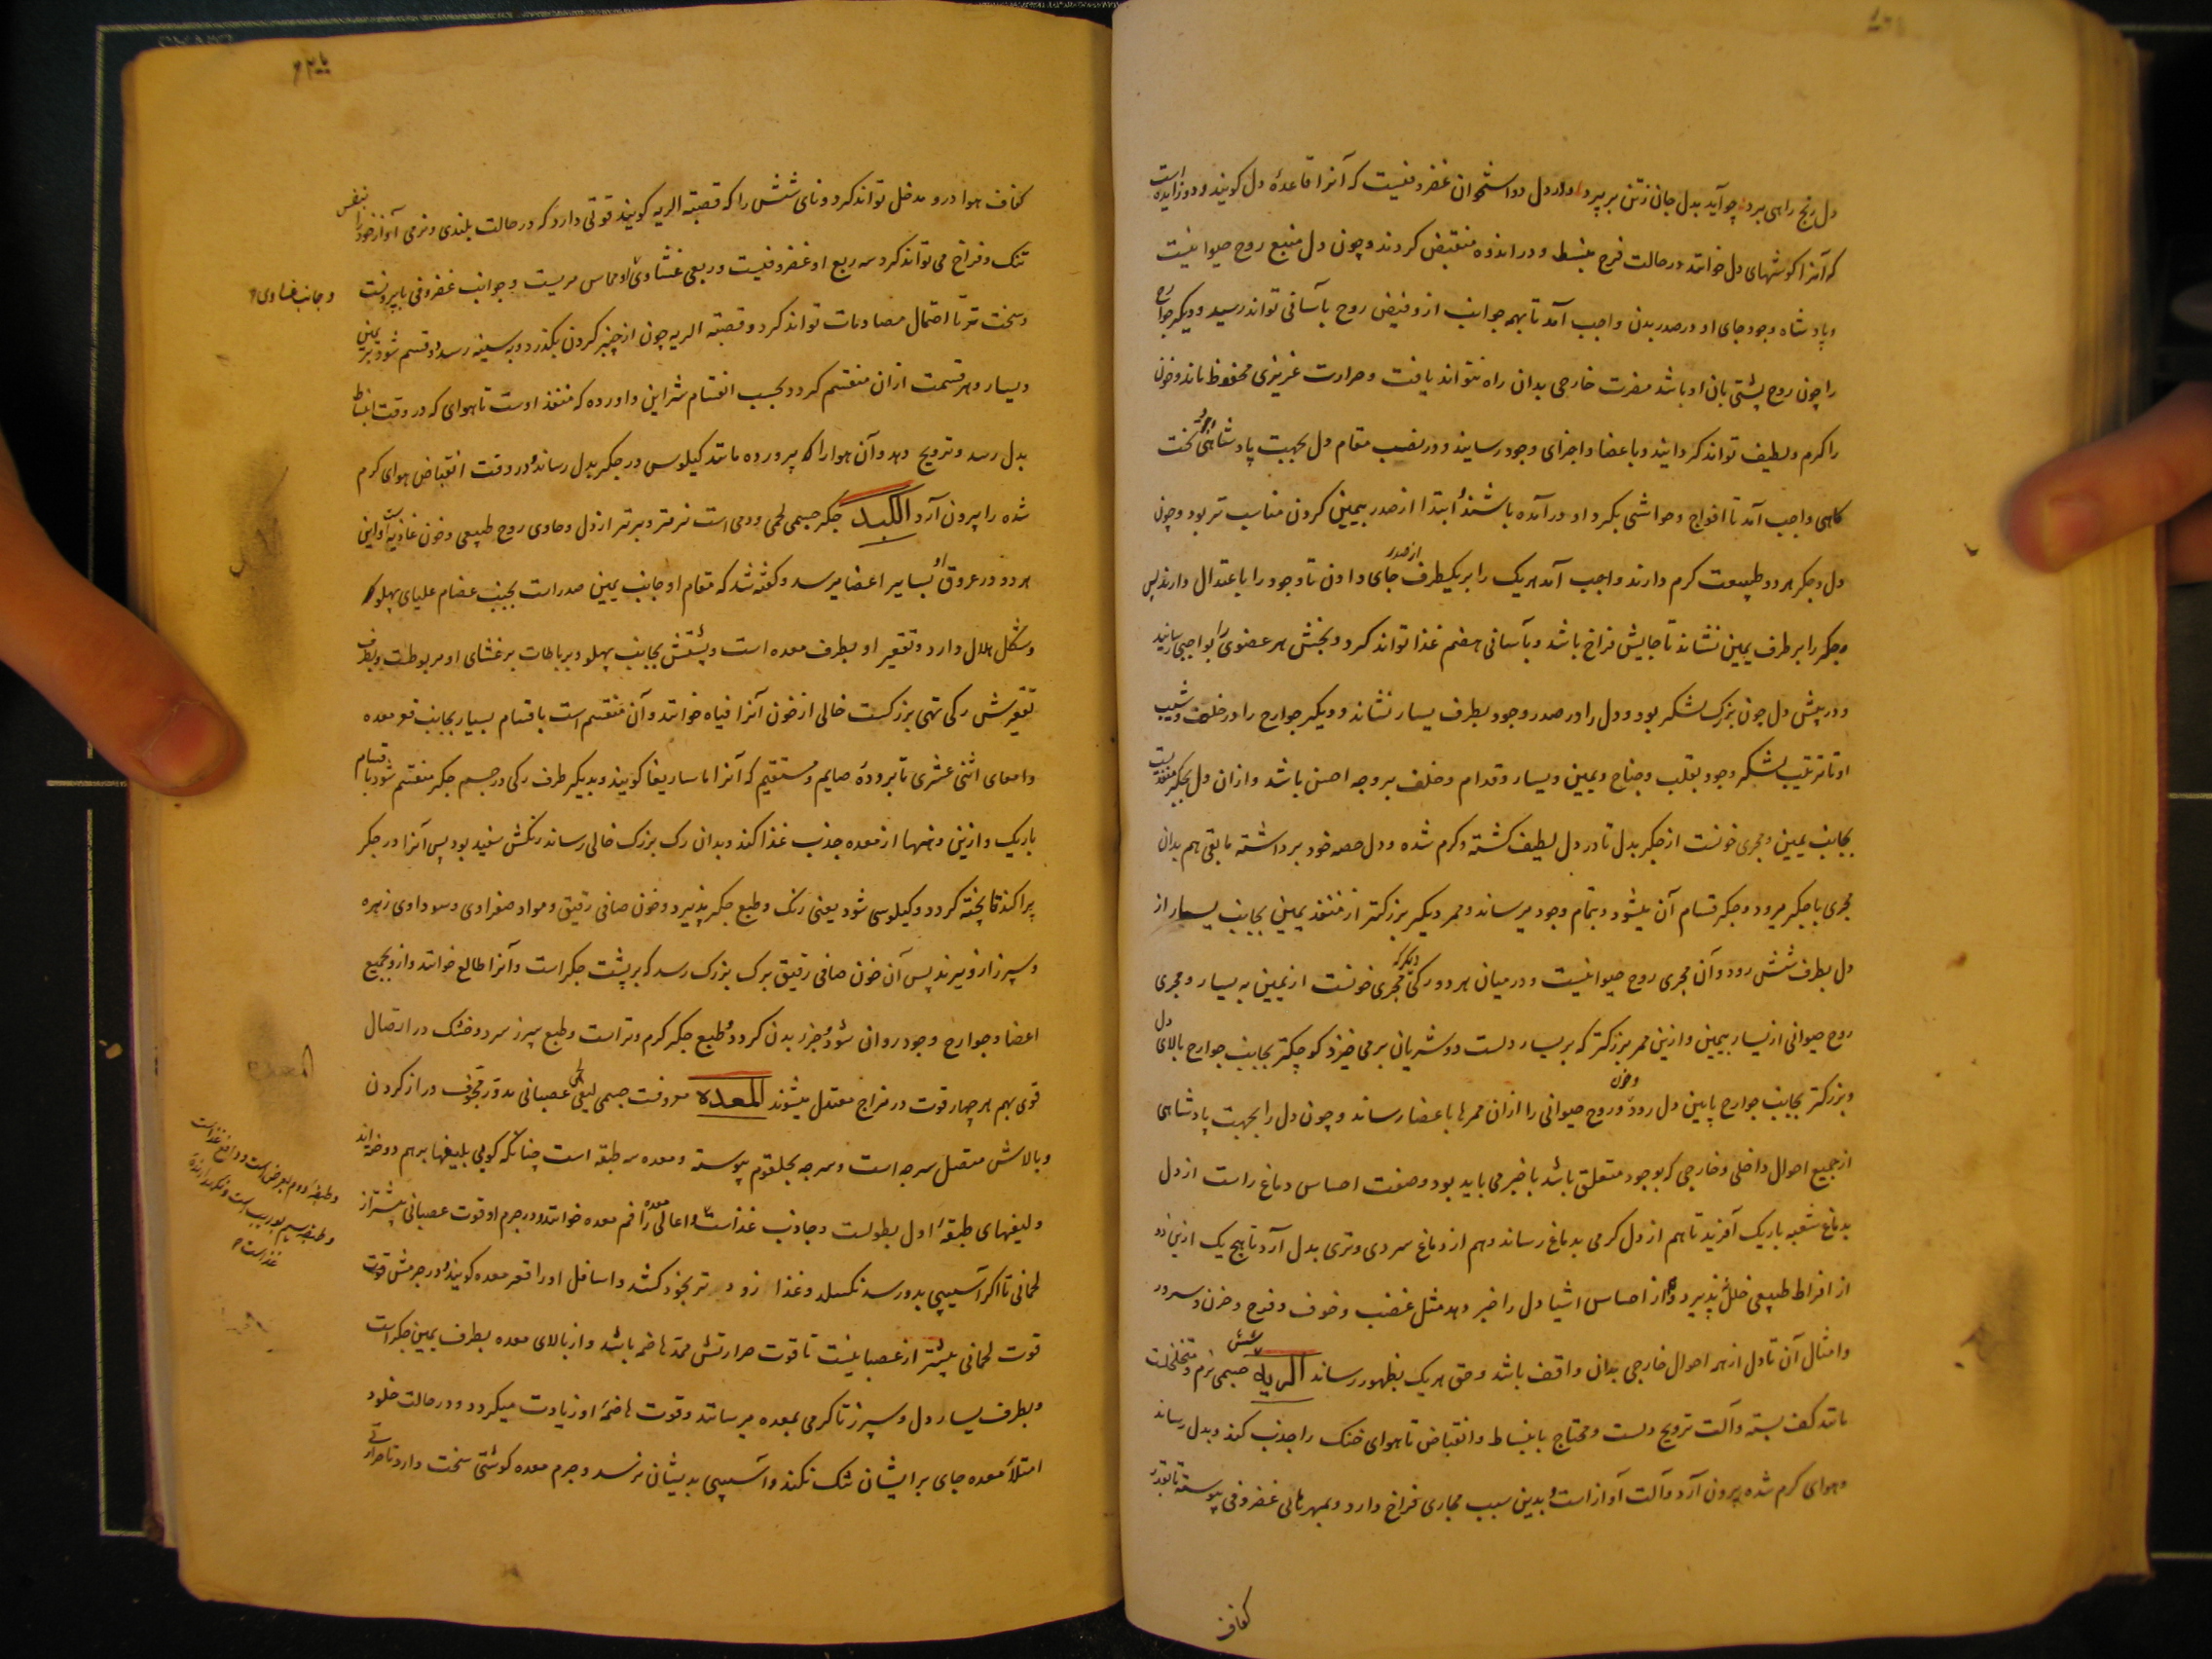 دل رنج راهی برد چو آید بدل جان ز تن بر پرد و در دل دو استخوان غضروفیست که آنرا قاعدهٔ دل کویند و دو زایده است
که آنرا کوشهای دل خوانند در حالت فرح منبسط و در اندوه منقبض کردند و چون دل منبع روح حیوانیست
و پادشاه وجود جای او در صدر بدن واجب آمد تا بهمه جوانب از و فیض روح بآسانی تواند رسید و دیکر جوارح
را چون روح پشتی بان او باشد مضرت خارجی بدان راه نتواند یافت و حرارت غریزی محفوظ ماند و خون
را کرم و لطیف تواند کردانید و باعضا و اجزای وجود رسانید و در نصب مقام دل بجهت پادشاهی وجود تخت
کاهی واجب آمد تا افواج و حواشی بکرد او در آمده باشند ابتدا از صدر بیمین کردن مناسب تر بود و چون
دل و جکر هر دو طبیعت کرم دارند واجب آمد هر یک را بر یکطرف از صدر جای دادن تا وجود را باعتدال دارند پس
جکر را بر طرف یمین نشاند تا جایش فراخ باشد و بآسانی هضم غذا تواند کرد و بخش هر عضوی را بواجبی رسانید
و در پیش دل چون بزرک لشکر بود و دل را در صدر وجود بطرف یسار نشاند و دیکر جوارح را در خلف و شیب
او تا ترتیب لشکر وجود بقلب و جناح و یمین و یسار و قدام و خلف بر وجه احسن باشد و از آن دل بجکر منفذیست
بجانب یمین و مجری خونست از جکر بدل تا در دل لطیف کشته و کرم شده و دل حصه خود برداشته مابقی هم بدان
مجری با جکر میرود و جکر قسام آن میشود و بتمام وجود میرساند و ممر دیکر بزرکتر از منفذ یمین بجانب یسار از
دل بطرف شش رود و آن مجری روح حیوانیست و در میان هر دو رکی دیکر که مجری خونست از یمین به یسار و مجری
روح حیوانی از یسار بیمین و ازین ممر بزرکتر که بر یسار دلست دو شریان بر می خیزد کوچکتر بجانب جوارح بالای دل
و بزرکتر بجانب جوارح پایین دل رود و خون و روح حیوانی را از آن ممرها باعضا رساند و چون دل را بجهت پادشاهی
از جمیع احوال داخلی و خارجی که بوجود متعلق باشد باخبر می باید بود و صفت احساس دماغ راست از دل
بدماغ شعبه باریک آفرید تا هم از دل کرمی بدماغ رساند و هم از دماغ سردی و تری بدل آرد تا هیچ یک ازین دو
از افراط طبیعی خلل نپذیرد و هم از احساس اشیا دل را خبر دهد مثل غضب و خوف و فرح و حزن و سرور
و امثال آن تا دل از هر احوال خارجی بدان واقف باشد و حق هر یک بظهور رساند الریه شش جسمی نرم و متخلخلست
مانند کف بسته و آلت ترویح دلست و محتاج بانبساط و انقباض تا هوای خنک را جذب کند و بدل رساند
و هوای کرم شده بیرون آرد و آلت آواز است بدین سبب مجاری فراخ دارد و بمهرهای غضروفی پیوسته تا بقدر
کفاف
کفاف هوا درو مدخل تواند کرد و نای شش را که قصبة الریه کویند قوتی دارد که در حالت بلندی و نرمی آواز خود را بنفس
تنک و فراخ می تواند کرد سه ربع او غضروفیست و ربعی غشاوی و مماس مریست و جوانب غضروفی بابیرونست
و جانب غشاوی
و سخت تر تا احتمال مصادمات تواند کرد و قصبة الریه چون از چنبر کردن بکذرد و به سینه رسد دو قسم شود بر یمین
و یسار و هر قسمت از آن منقسم کردد بحسب انقسام شراین و اورده که منفذ اوست تا هوای که در وقت انبساط
بدل رسد و ترویح دهد و آن هوا را پرورده مانند کیلوس در جکر بدل رساند و در وقت انقباض هوای کرم
شده را بیرون آرد الکبد جکر جسمی لحمی و دمی است نرمتر و برتر از دل و حاوی روح طبیعی و خون غاذیه است و این
هر دو در عروق او بسایر اعضا میرسد و کفته شد که مقام او جانب یمین صدر است بجنب عضام علیای پهلو
و شکل هلال دارد و تقعیر او بطرف معده است و پشتش بجانب پهلو و برباطات بر غشای او مربوطست و بطرف
تقعیرش رکی تهی بزرکست خالی از خون آنرا فیاه خوانند و آن منقسم است باقسام بسیار بجانب قعر معده
و امعای اثنی عشری تا بروده صایم و مستقیم که آنرا ماساریقا کویند و بدیکر طرف رکی در جسم جکر منقسم شود باقسام
باریک و ازین دهنها از معده جذب غذا کند و بدان رک بزرک خالی رساند رنکش سفید بود پس آنرا در جکر
پراکند تا پخته کردد و کیلوسی شود یعنی رنک و طبع جکر پذیرد و خون صافی رقیق و مواد صفراوی و سوداوی زهره
و سپرز ازو ببرند پس آن خون صافی رقیق برک بزرک رسد که بر پشت جکر است و آنرا طالع خوانند و ازو بجمیع
اعضا و جوارح وجود روانی شود و جزو بدن کردد و طبع جکر کرم و تر است و طبع سپرز سرد و خشک در اتصال
قوی بهم هر چهار قوت در مزاج معتدل میشوند المعده معروفست جسمی لیفی لحمی عصبانی مدور مجوف دراز کردن
و بالاش متصل سرجه است و سرجه بحلقوم پیوسته و معده سه طبقه است چنانکه کویی بلیفها بر هم دوخته‌اند
و لیفهای طبقهٔ اول بطولست و جاذب غذاست و اعالی معده را فم معده خوانند و در جرم او قوت عصبانی بیشتر از
و طبقهٔ دوم بعرض است و دافع غذاست
و طبقه سیم بوریب است و نکهدارندهٔ
غذاست
لحمانی تا اکر آسیبی بدو رسد نکسلد و غذا زود تر بخود کشد و اسافل او را قعر معده کویند و در جرمش قوت
قوت لحمانی بیشتر از عصبانیست تا قوت حرارتش ممد هاضمه باشد و از بالای معده بطرف یمین جکر است
و بطرف یسار دل و سپرز تا کرمی بمعده میرسانند و قوت هاضمهٔ او زیادت میکردد و در حالت خلو و
امتلأ معده جای بر ایشان تنک نکند و آسیبی بدیشان نرسد و جرم معده کوشتی سخت دارد تا حرارتی